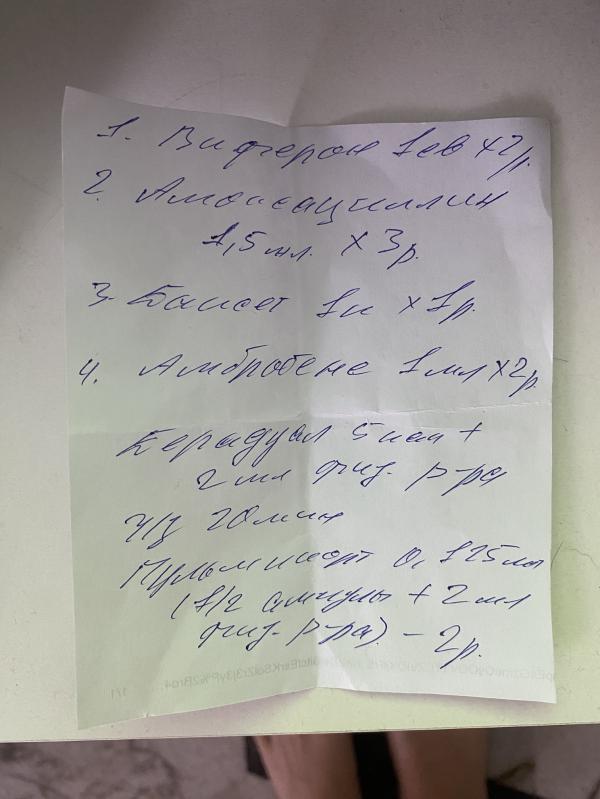 1. Виферон 1св х2р.
2. Амоксациллин
1,5мл. х 3р.
3. Бактет 1п х 1р.
4. Амбробене 1мл х2р.
Беродуал 5кап +
2мл физ. р-ра
ч/з 20мин
Пульмикорт 0,125мг
(1/2 ампулы + 2мл
физ. р-ра) - 2р.